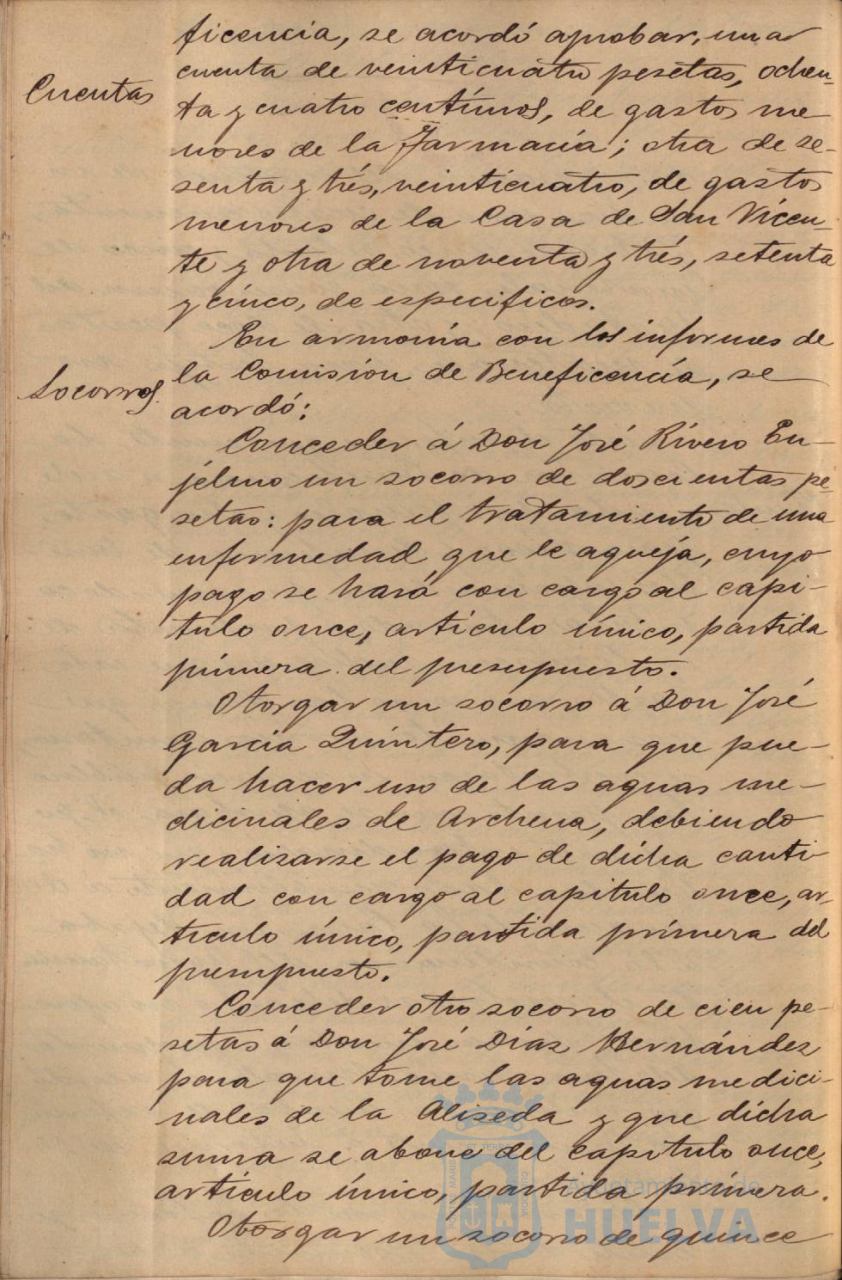 ficencia, se acordó aprobar, una
Cuentas
cuenta de veinticuatro pesetas, ochen-
ta y cuatro centímos, de gastos me
nores de la Farmacía; otra de se-
senta y trés, veinticuatro, de gastos
menores de la Casa de San Vícen-
te y otra de noventa y trés, setenta
y cinco, de especificos.
En armonía con los informes de
Socorros.
la Comisíon de Beneficencía, se
acordó:
Conceder á Don José Rívero En-
jélmo un socorro de doscientas pe-
setas: para el tratamiento de una
enfermedad que le aqueja, cuyo
pago se hará con cargo al capi-
tulo once, artículo único, partida
prímera del presupuesto.
Otorgar un socorro á Don José
Garcia Quíntero, para que pue-
da hacer uso de las aguas me-
dicinales de Archena, debiendo
realizarse el pago de dícha canti
dad con cargo al capitulo once, ar-
tículo único, partida prímera del
presupuesto.
Conceder otro socorro de cien pe-
setas á Don José Díaz Hernández
para que tome las aguas medici-
nales de la Aliseda y que dícha
suma se abone del capitulo once,
artículo único, partida prímera.
Otorgar un socorro de quince
Ayuntamiento de
HUELVA